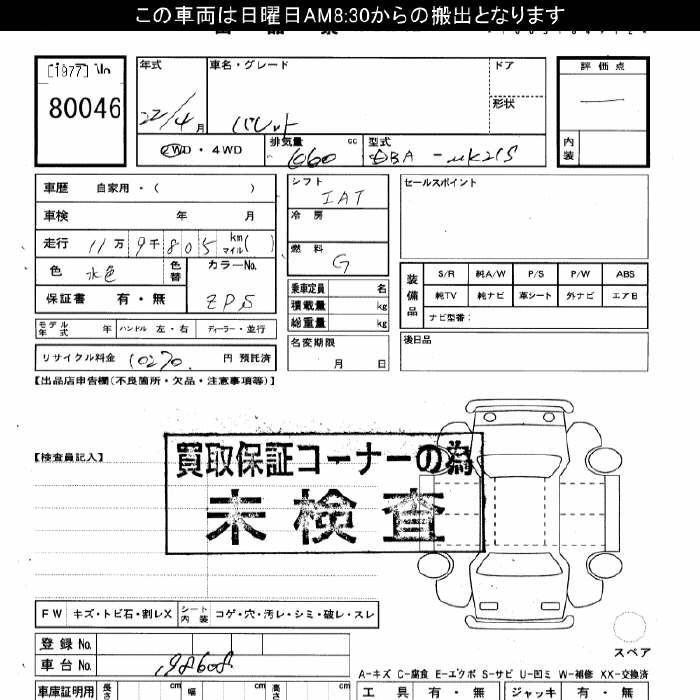 この車両は日曜日AM8:30からの搬出となります
[1977]
80046
年式
22/4月
車名・グレード
パレット
ドア
形状
評価点
内装
2WD・4WD
排気量
660 cc
型式
DBA - MK21S
車歴 自家用・( )
車検 年 月
走行 11万9千805 km マイル( )
色 水色 色替
カラーNo.
ZPS
保証書 有・無
モデル年式 年 ハンドル 左・右 ディーラー・並行
リサイクル料金 10270 円 預託済
シフト
IAT
冷房
燃料
G
乗車定員 名
積載量 kg
総重量 kg
名変期限
月 日
セールスポイント
装備品
S/R 純A/W P/S P/W ABS
純TV 純ナビ 革シート 外ナビ エアB
ナビ型番:
後日品
【出品店申告欄(不良箇所・欠品・注意事項等)】
【検査員記入】
買取保証コーナーの為
未検査
FW キズ・トビ石・割レX シート内装 コゲ・穴・汚レ・シミ・破レ・スレ
登録No.
車台No. 198608
スペア
A-キズ C-腐食 E-エクボ S-サビ U-凹ミ W-補修 XX-交換済
車庫証明用 長さ cm 幅 cm 高さ cm
工具 有・無 ジャッキ 有・無